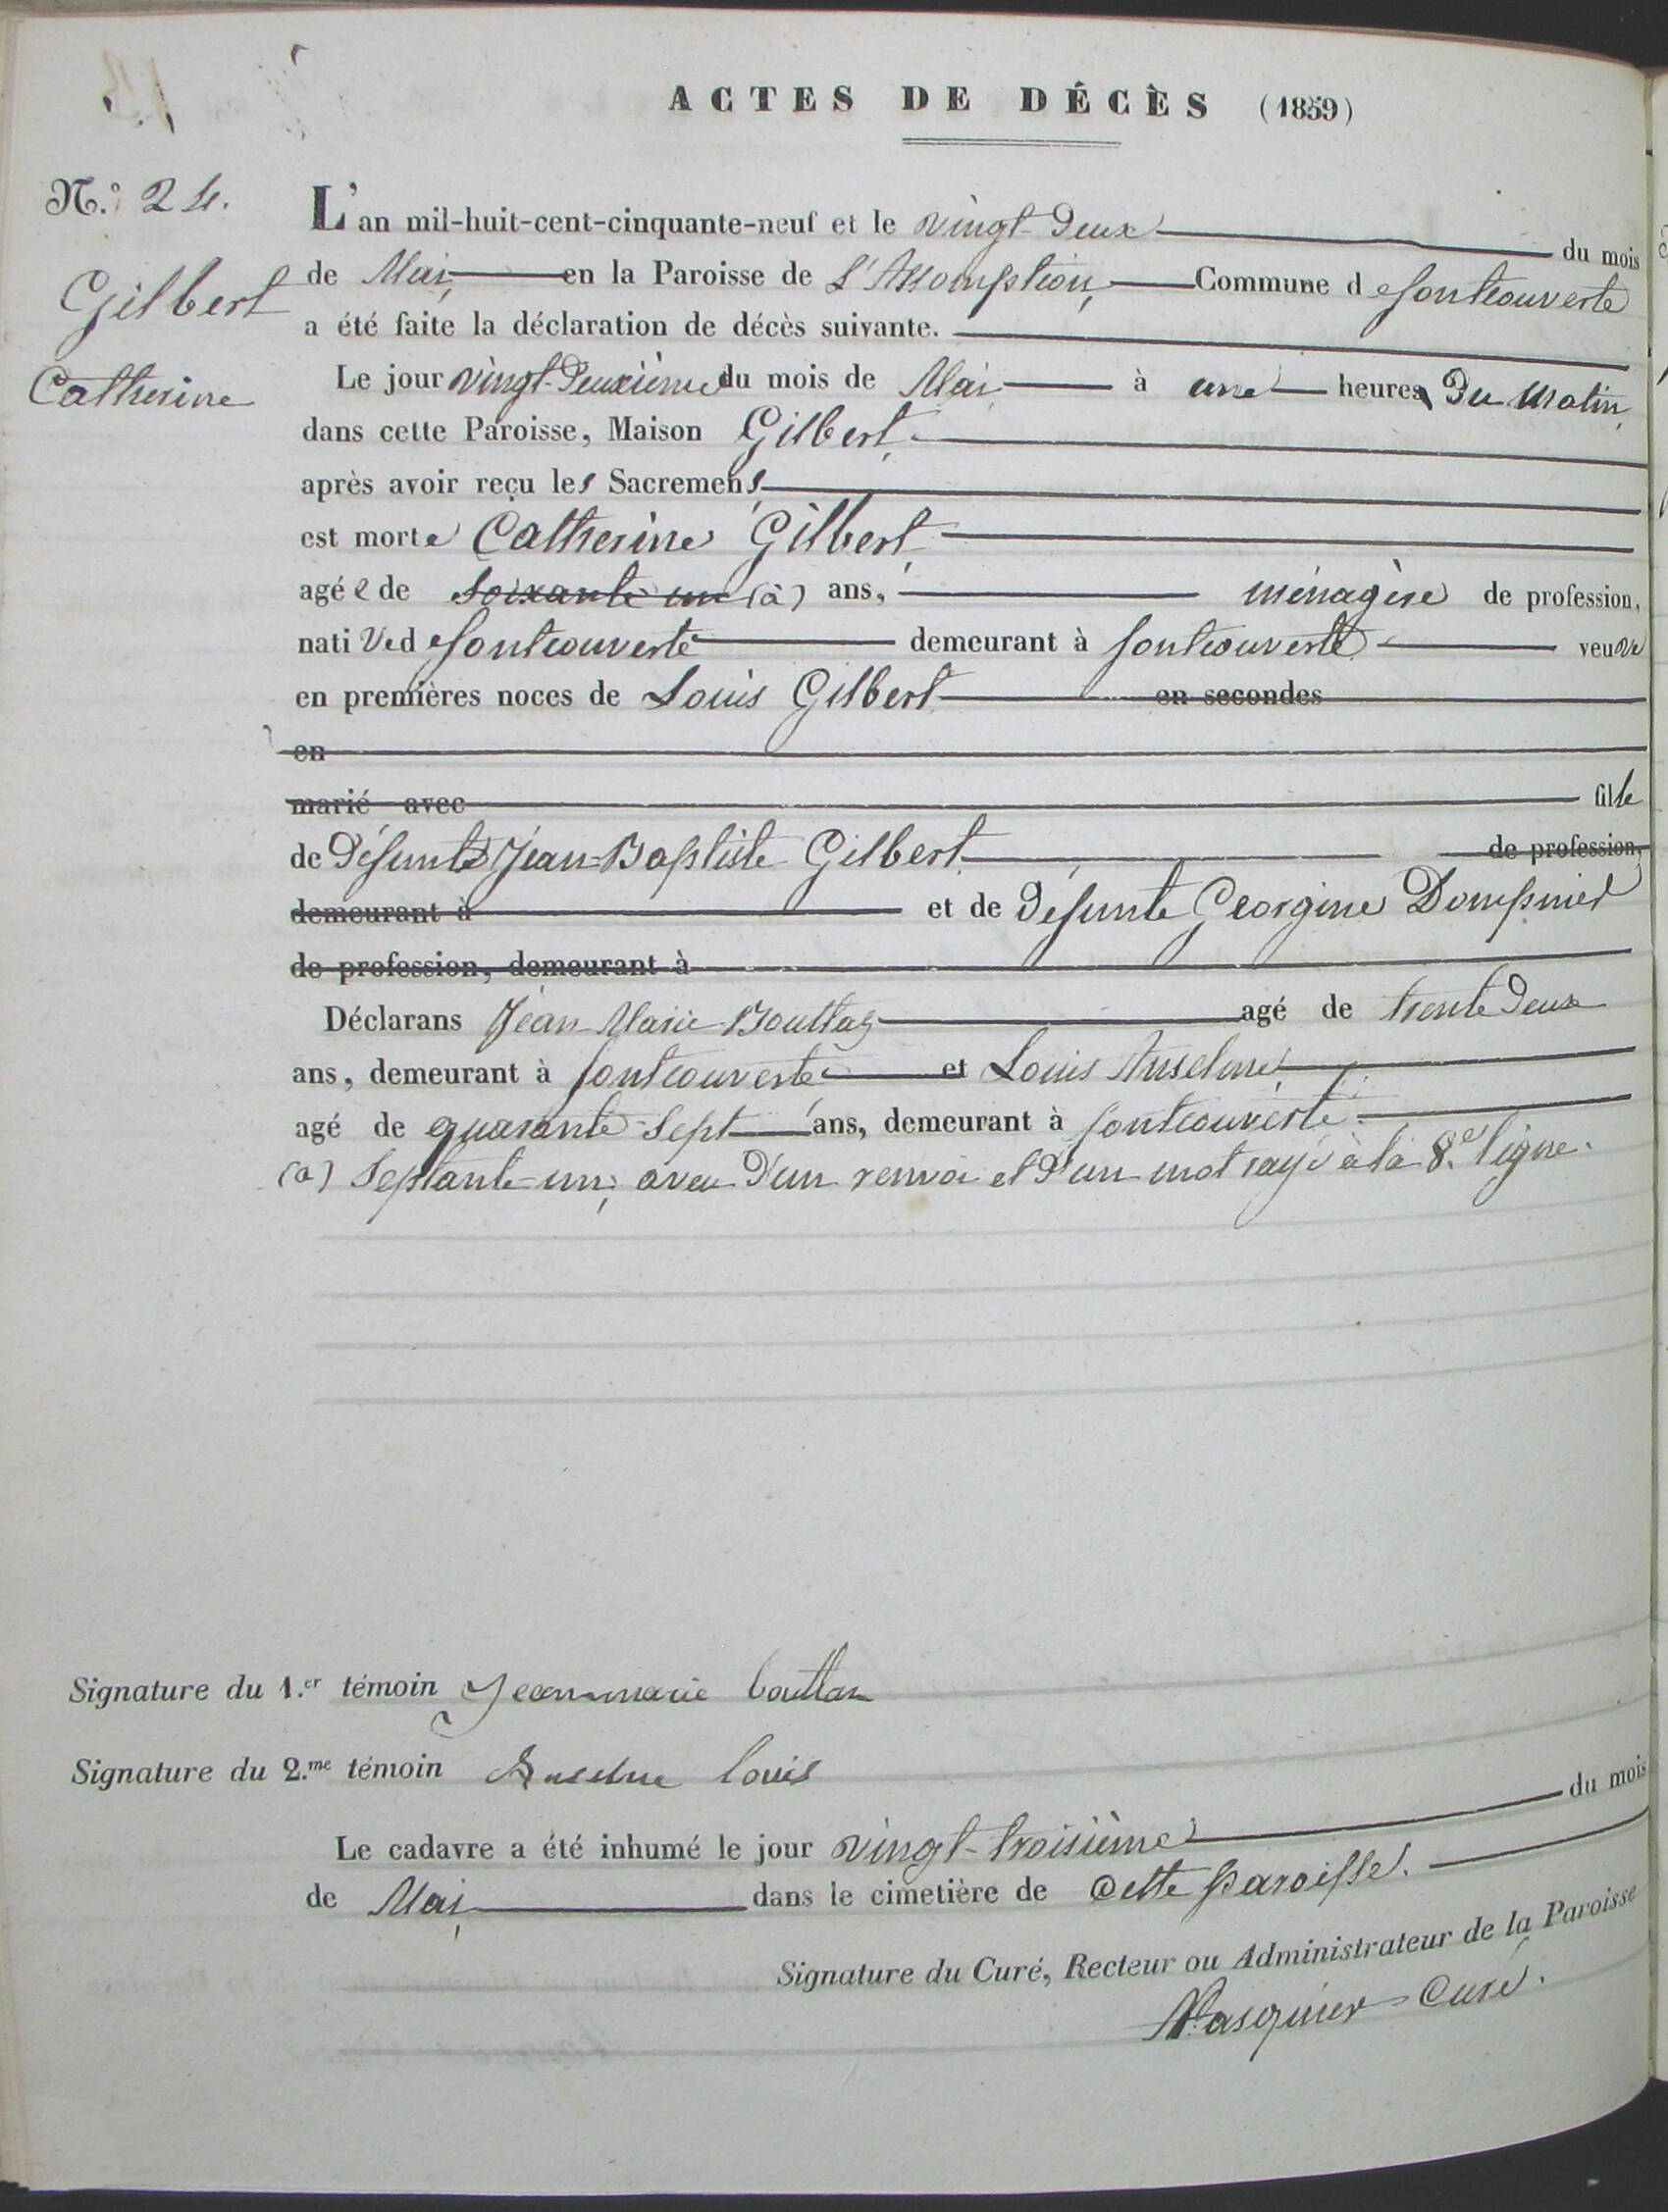 ACTES DE DÉCÈS (1859)
N.º 24.
Gilbert
Catherine
L'an mil-huit-cent-cinquante-neuf et le vingt-deux du mois
de Mai, en la Paroisse de L'Assomption, Commune de fontcouverte
a été faite la déclaration de décès suivante.
Le jour vingt-deuxième du mois de Mai à une heures du matin,
dans cette Paroisse, Maison Gilbert,
après avoir reçu les Sacremens,
est morte Catherine Gilbert,
agée de soixante-un (a) ans, ménagère de profession,
native de fontcouverte demeurant à fontcouverte veuve
en premières noces de Louis Gilbert en secondes
en
marié avec fille
de défunts Jean-Baptiste Gilbert, de profession,
demeurant à et de défunte Georgine Dompnier
de profession, demeurant à
Déclarans Jean-Marie Bouttaz agé de trente deux
ans, demeurant à fontcouverte et Louis Anselme,
agé de quarante-sept ans, demeurant à fontcouverte.
(a) Septante-un; aveu d'un renvoi et d'un mot rayé à la 8.e ligne.
Signature du 1.er témoin Jean-marie bouttaz
Signature du 2.me témoin Anselme louis
Le cadavre a été inhumé le jour vingt-troisième du mois
de Mai, dans le cimetière de cette paroisse.
Signature du Curé, Recteur ou Administrateur de la Paroisse
Curé.